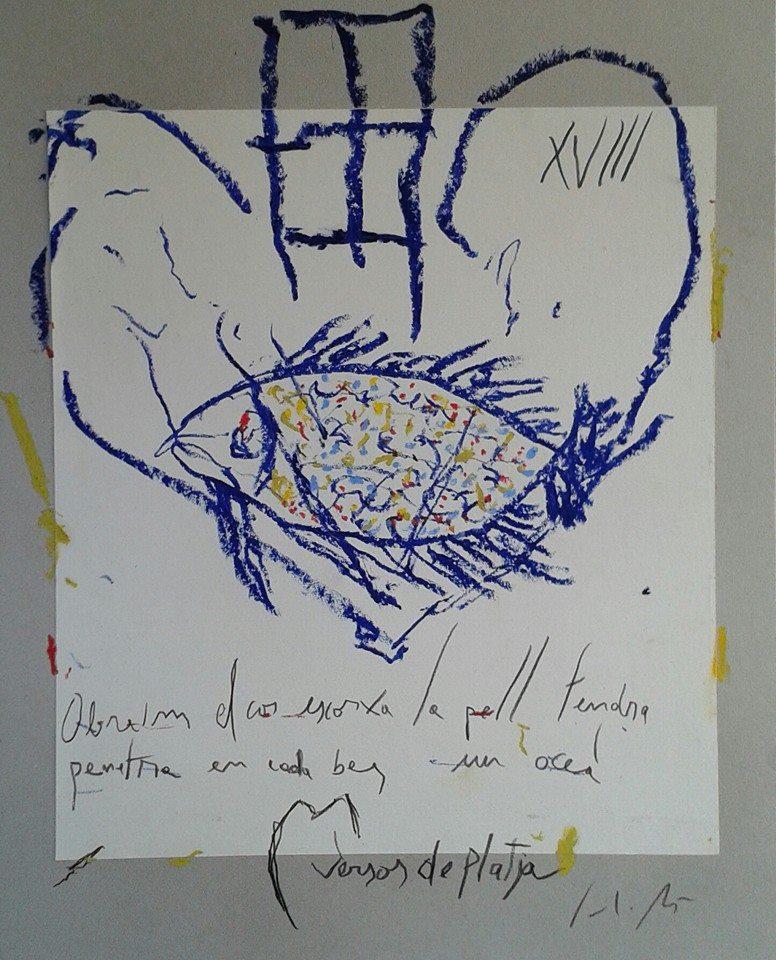 XVIII
el cos escorxa la pell tendra
penetra en cada bes un oceà
Versos de platja